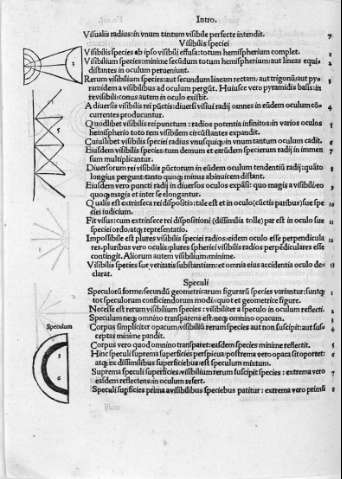 Intro.
Visualis radius: in vnum tantum visibile perfecte intendit. 7
Visibilis speciei
Visibilis species ab ipso visibili effusa: totum hemispherium complet. 2
Visibilium species: minime secundum totum hemispherium: aut lineas equi-
distantes in oculum perueniunt.
Rerum visibilium species: aut secundum lineam rectam: aut trigonū: aut py-
ramidem a visibilibus ad oculum pergūt. Huiusce vero pyramidis basis: in
re visibili: conus autem in oculo existit.
A diuersis visibilis rei pūctis: diuersi visui radij omnes in eūdem oculum cō-
currentes producuntur.
Quodlibet visibilis rei punctum: radios potentia infinitos: in varios oculos
hemispherio toto rem visibilem circūstantes expandit.
Cuiuslibet visibilis speciei radius vnus: quisq; in vnum tantum oculum cadit.
Eiusdem visibilis species: tum demum et eiusdem specierum radij in immen
sum multiplicantur.
Diuersorum rei visibilis pūctorum in eūdem oculum tendentiū radij: quāto
longius pergunt: tanto quoq; minus abinuicem distant.
Eiusdem vero puncti radij in diuersos oculos expāsi: quo magis a visibili: eo
quoq; magis et inter se elongantur.
Qualis est extrinseca rei dispositio: tale est et in oculo (cūctis paribus) sue spe
ciei iudicium.
Fit visus: cum extrinsece rei dispositioni (dissimilia tolle) par est in oculo sue
speciei ordo: atq; representatio.
Impossibile est plures visibilis speciei radios: eidem oculo esse perpendicula
res. pluribus vero oculis plures spherici visibilis radios perpendiculares esse
contingit. Aliorum autem visibilium: minime.
Visibilis species: sue veritatis substantiam: et omnia eius accidentia oculo de-
clarat.
Speculi
Speculorū forme: secundū geometricarum figurarū species variantur: sunt q;
tot speculorum conficiendorum modi: quot et geometrice figure.
Necesse est rerum visibilium species: visibiliter a speculo in oculum reflecti.
Speculum neq; omnino transparens est: neq; omnino opacum.
Corpus simpliciter opacum: visibiliū rerum species aut non suscipit: aut sus
ceptas minime pandit.
Corpus vero quod omnino transparet: easdem species minime reflectit.
Hinc speculi suprema superficies perspicua: postrema vero opaca sit oportet:
atq; ex dissimilibus superficiebus: est speculum mixtum.
Suprema speculi superficies: visibilium rerum suscipit species: extrema vero
easdem reflectens: in oculum refert.
Speculi supficies prima a visibilibus speciebus patitur: extrema vero prima
Speculum